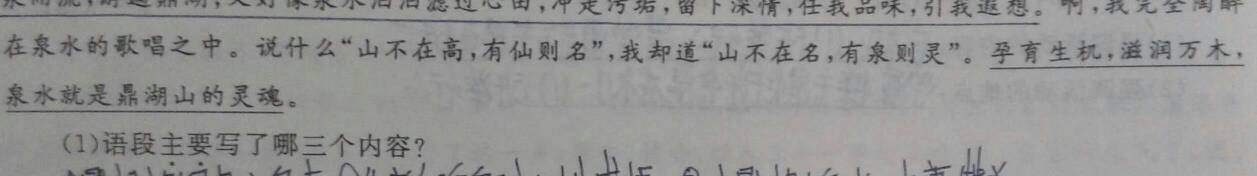 泉而流,舒适鼎湖,又好像泉水汩汩滤过心田,冲走污垢,留下深情,任我品味,引我遐想。啊,我完全陶醉
在泉水的歌唱之中。说什么“山不在高,有仙则名”,我却道“山不在名,有泉则灵”。孕育生机,滋润万木,
泉水就是鼎湖山的灵魂。
(1)语段主要写了哪三个内容?